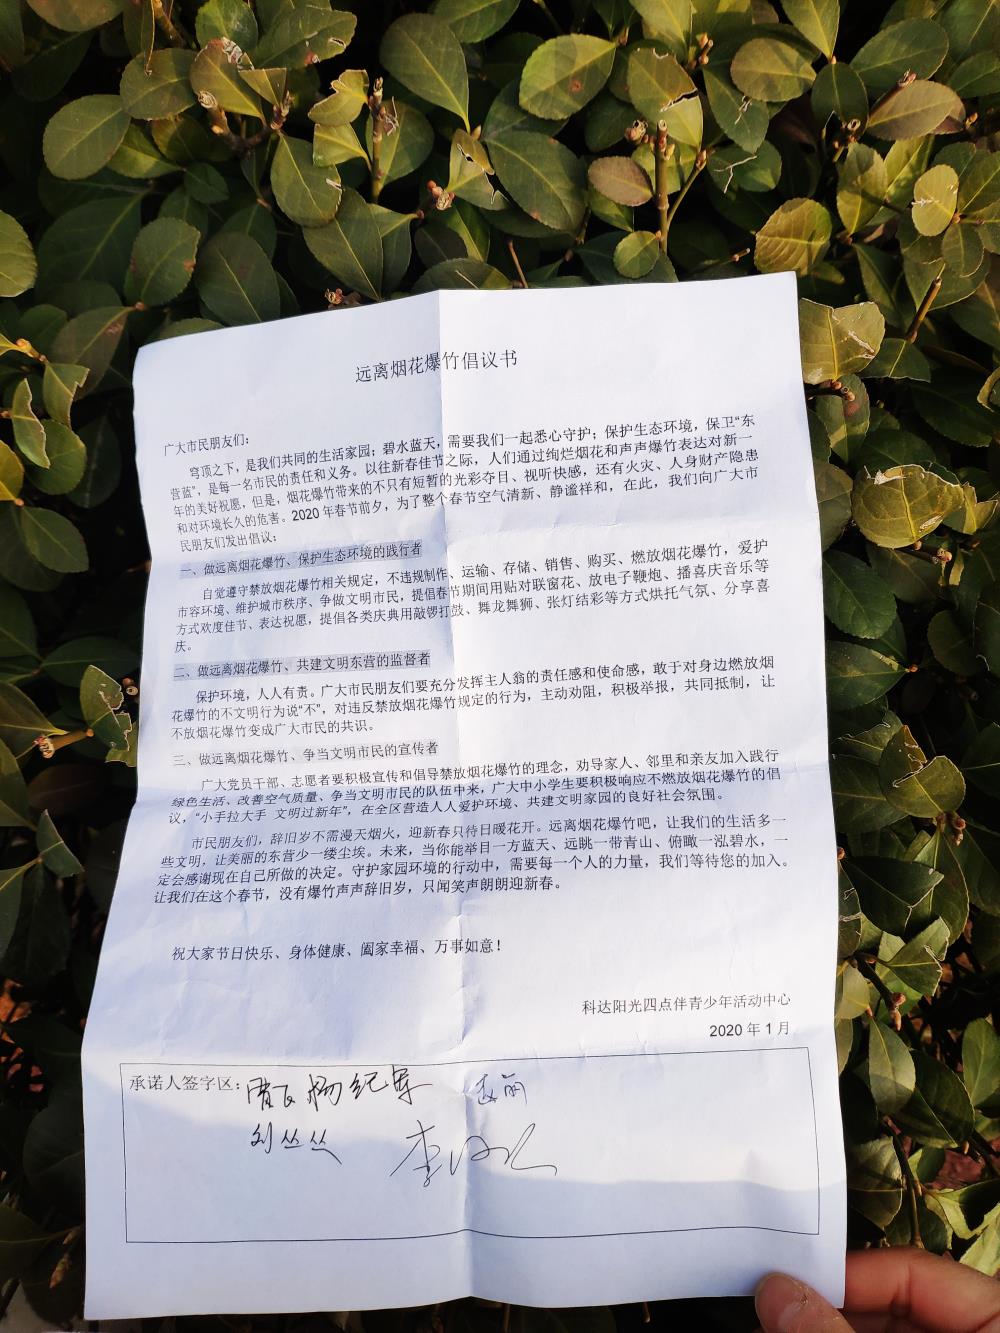 远离烟花爆竹倡议书
广大市民朋友们：
穹顶之下，是我们共同的生活家园；碧水蓝天，需要我们一起悉心守护；保护生态环境，保卫“东
营蓝”，是每一名市民的责任和义务。以往新春佳节之际，人们通过绚烂烟花和声声爆竹表达对新一
年的美好祝愿，但是，烟花爆竹带来的不只有短暂的光彩夺目、视听快感，还有火灾、人身财产隐患
和对环境长久的危害。2020年春节前夕，为了整个春节空气清新、静谧祥和，在此，我们向广大市
民朋友们发出倡议：
一、做远离烟花爆竹、保护生态环境的践行者
自觉遵守禁放烟花爆竹相关规定，不违规制作、运输、存储、销售、购买、燃放烟花爆竹，爱护
市容环境、维护城市秩序、争做文明市民，提倡春节期间用贴对联窗花、放电子鞭炮、播喜庆音乐等
方式欢度佳节、表达祝愿，提倡各类庆典用敲锣打鼓、舞龙舞狮、张灯结彩等方式烘托气氛、分享喜
庆。
二、做远离烟花爆竹、共建文明东营的监督者
保护环境，人人有责。广大市民朋友们要充分发挥主人翁的责任感和使命感，敢于对身边燃放烟
花爆竹的不文明行为说“不”，对违反禁放烟花爆竹规定的行为，主动劝阻，积极举报，共同抵制，让
不放烟花爆竹变成广大市民的共识。
三、做远离烟花爆竹、争当文明市民的宣传者
广大党员干部、志愿者要积极宣传和倡导禁放烟花爆竹的理念，劝导家人、邻里和亲友加入践行
绿色生活、改善空气质量、争当文明市民的队伍中来，广大中小学生要积极响应不燃放烟花爆竹的倡
议，“小手拉大手 文明过新年”，在全区营造人人爱护环境、共建文明家园的良好社会氛围。
市民朋友们，辞旧岁不需漫天烟火，迎新春只待日暖花开。远离烟花爆竹吧，让我们的生活多一
些文明，让美丽的东营少一缕尘埃。未来，当你能举目一方蓝天、远眺一带青山、俯瞰一泓碧水，一
定会感谢现在自己所做的决定。守护家园环境的行动中，需要每一个人的力量，我们等待您的加入。
让我们在这个春节，没有爆竹声声辞旧岁，只闻笑声朗朗迎新春。
祝大家节日快乐、身体健康、阖家幸福、万事如意！
科达阳光四点伴青少年活动中心
2020年1月
承诺人签字区：
刘丛丛